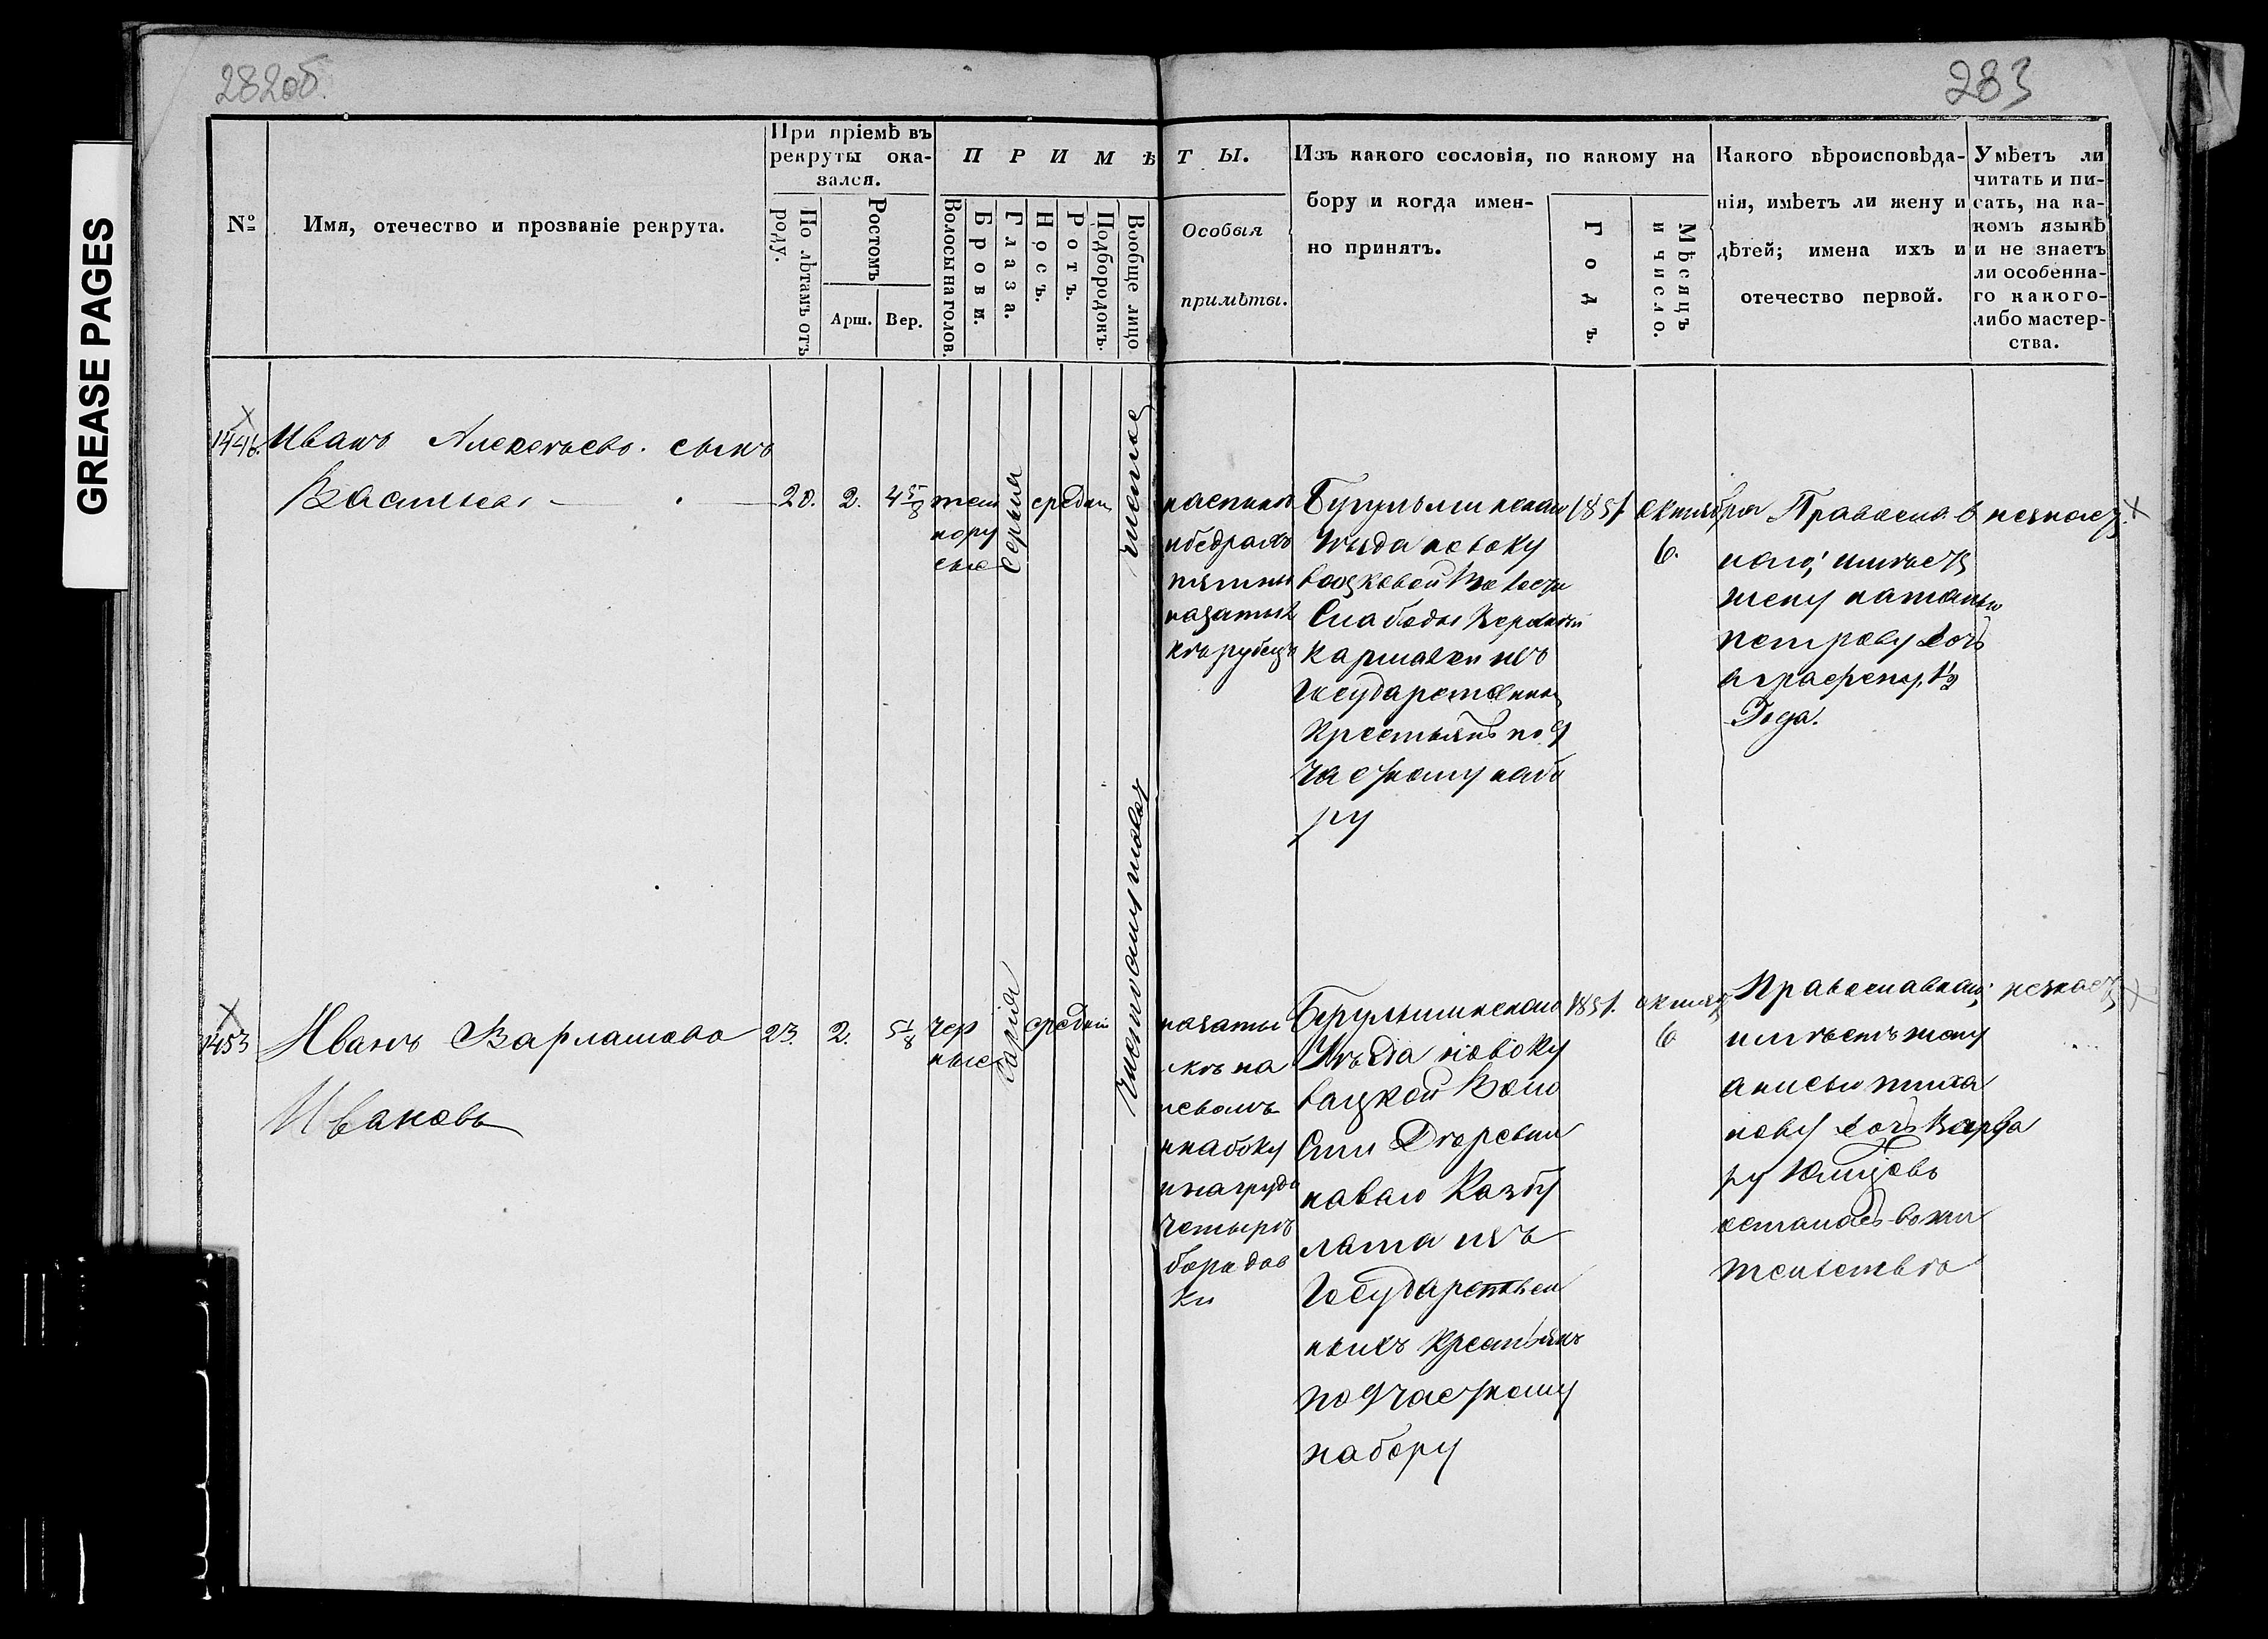 282об.
283
GREASE PAGES
№
Имя, отечество и прозваніе рекрута.
При пріемѣ въ
рекруты ока-
зался.
По лѣтамъ отъ
роду.
Ростомъ
Арш.
Вер.
ПРИМѢТЫ.
Волосы на голов.
Брови.
Глаза.
Носъ.
Ротъ.
Подбородокъ.
Вообще лицо
Особыя
примѣты.
Изъ какого сословія, по какому на
бору и когда имен-
но принятъ.
Годъ.
Мѣсяцъ
и число.
Какого вѣроисповѣда-
нія, имѣетъ ли жену и
дѣтей; имена ихъ и
отечество первой.
Умѣетъ ли
читать и пи-
сать, на ка-
комъ языкѣ
и не знаетъ
ли особенна-
го какого-
либо мастер-
ства.
1446. Иванъ Алексѣевъ сынъ
Васильевъ
20. 2. 4 5/8
темно
русые
серыя
средни
чистое
на спинѣ
и бедрахъ
пятны
на затыл
кѣ рубецъ
Бугульминскаго
Уѣзда новоку
вацковой Волости
Слободы
Кармалки изъ
Государственных
Крестьянъ по 9
частному набо
ру
1851
октября
6.
Православ
наго; имѣетъ
жену наталью
петрову дочь
аграфену 1/2
Года.
незнаетъ
1453 Иванъ Варламовъ
Ивановъ
23. 2. 5 1/8
чер
ные
карія
средній
чистосмугловат
на заты
лкѣ на
левомъ
и на боку
и на груде
четырѣ
борадав
ки
Бугульминскаго
Уѣзда новоку
вацкой Воло
сти Деревни
наваго
лата изъ
Государствен
ныхъ крестьянъ
по 9 частному
набору
1851.
октяб
6
Православнаго;
имѣетъ жену
анисью тиха
нову дочь Варва
ру
осталась вожи
тельствѣ
незнаетъ